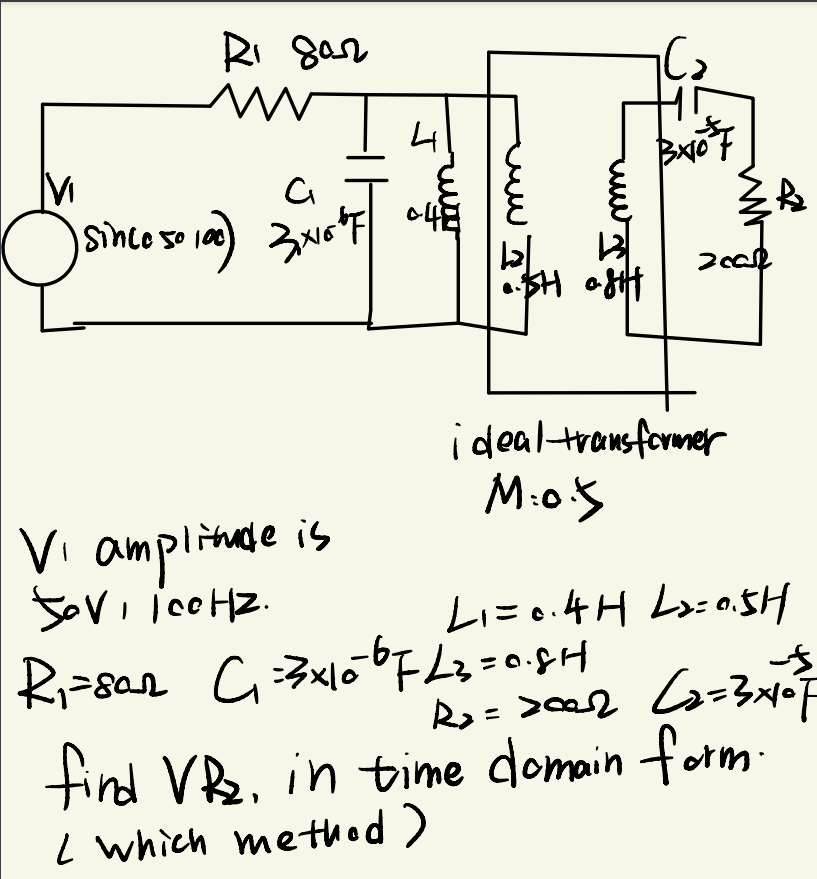 R1 80Ω
C2
3×10⁻⁵F
L1
V1
sin(0 50 100)
C1
3×10⁻⁶F
0.4H
R2
200Ω
L2
0.5H
L3
0.8H
ideal transformer
M:0.5
V1 amplitude is
50V, 100HZ.
L1=0.4H L2=0.5H
R1=80Ω C1=3×10⁻⁶F L3=0.8H
R2=200Ω C2=3×10⁻⁵F
find VR2, in time domain form.
(which method)